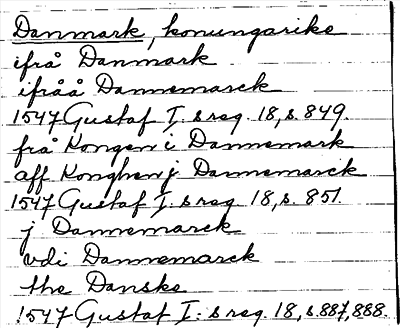 Danmark, konungarike
ifrå Danmark
ifråå Dannemarck
1547 Gustaf I: s reg. 18, s. 849.
frå Kongen i Dannemark
aff Konghen j Dannemarck
1547 Gustaf I: s reg. 18, s. 851.
j Dannemarck
vdi Dannemarck
the Danske
1547 Gustaf I: s reg. 18, s. 887, 888.